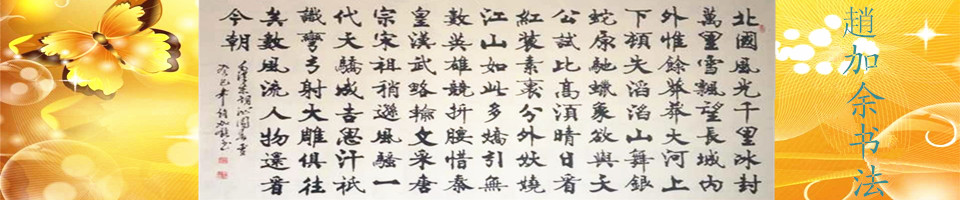 趙加余书法
北國風光千里冰封
萬里雪飄望長城內
外惟餘莽莽大河上
下頓失滔滔山舞銀
蛇原馳蠟象欲與天
公試比高須晴日看
紅裝素裹分外妖嬈
江山如此多嬌引無
數英雄競折腰惜秦
皇漢武略輸文采唐
宗宋祖稍遜風騷一
代天驕成吉思汗祇
識彎弓射大雕俱往
矣數風流人物還看
今朝
毛澤東詞沁園春雪